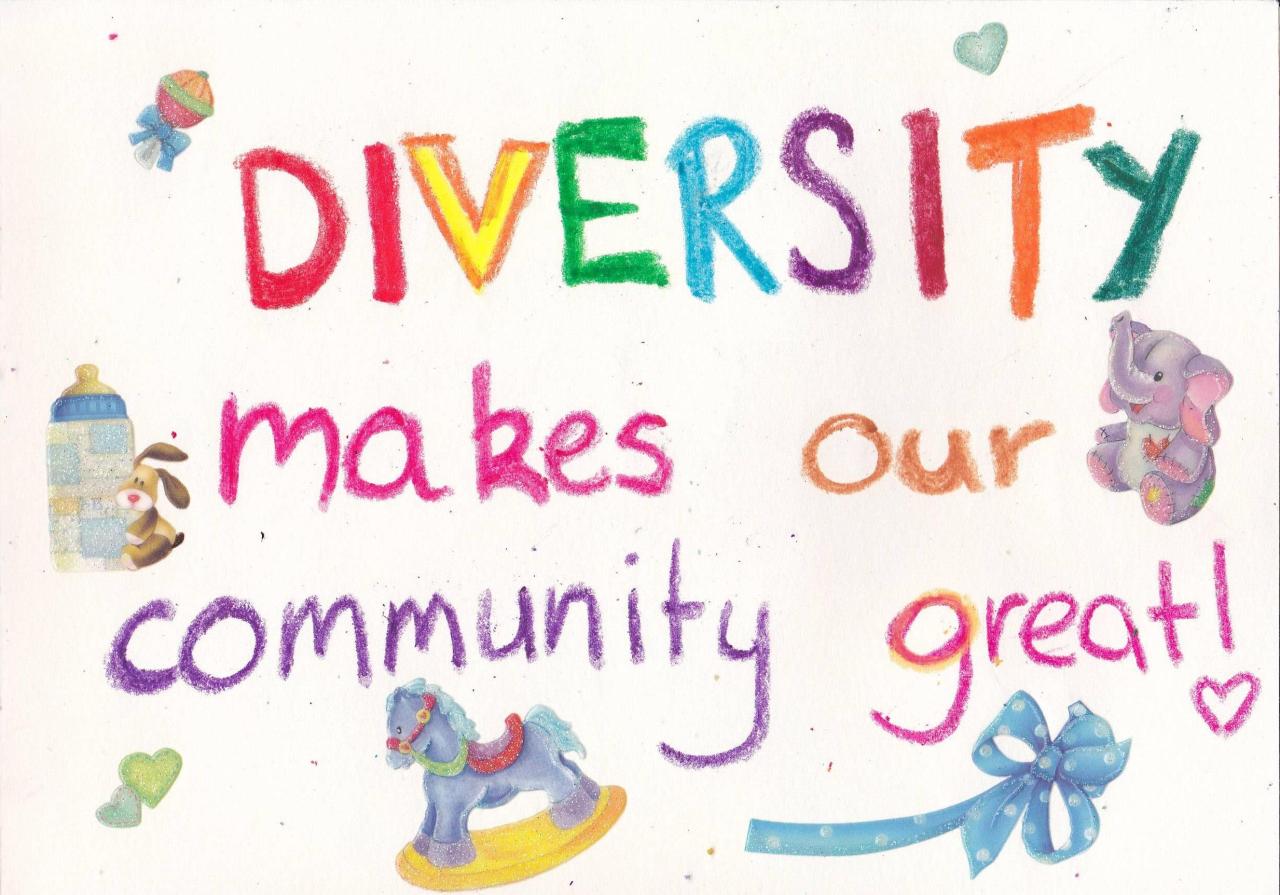 DIVERSITY
makes our
community great!